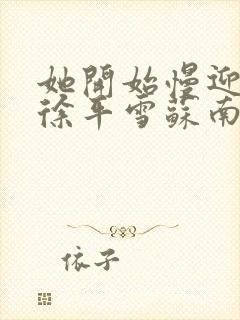 她開始慢迎
徐平雪蘇南
依子